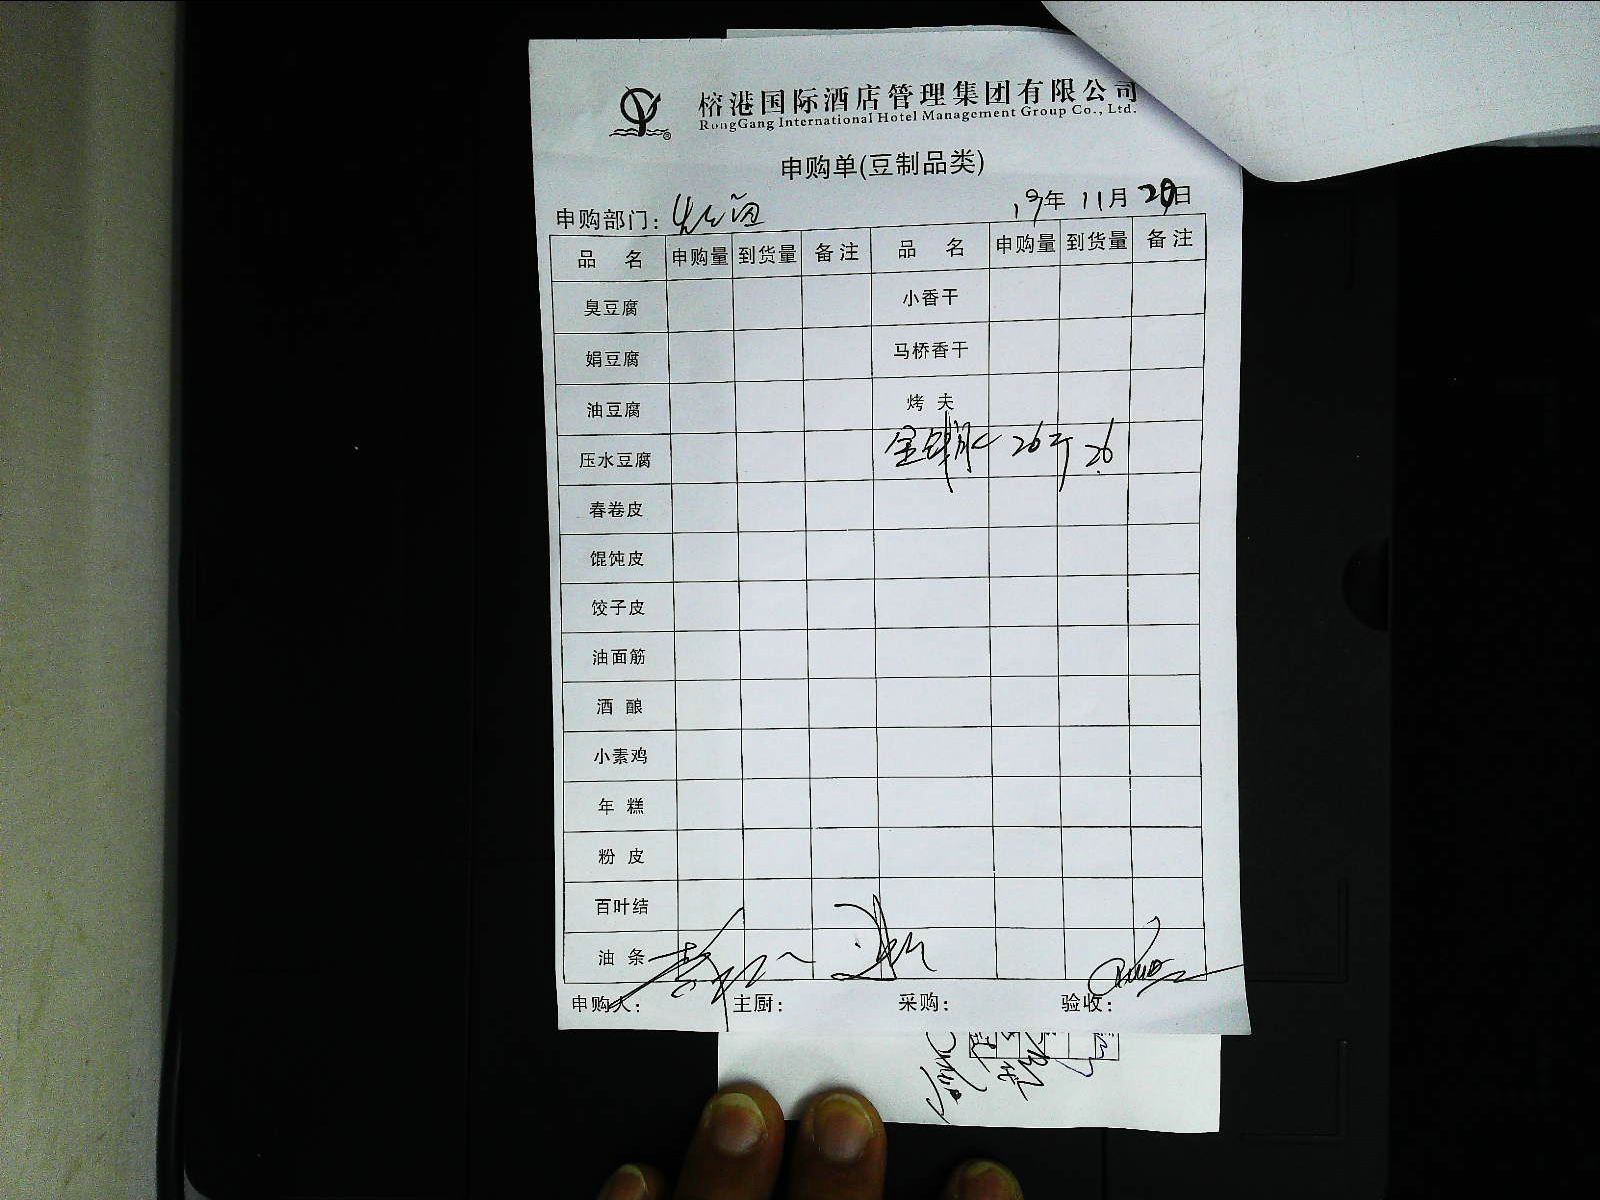 榕港国际酒店管理集团有限公司
RongGang International Hotel Management Group Co., Ltd.
申购单(豆制品类)
申购部门: 19年 11月 20日
品 名 申购量 到货量 备注 品 名 申购量 到货量 备注
臭豆腐 小香干
娟豆腐 马桥香干
油豆腐 烤 夫
压水豆腐 26 26
春卷皮
馄饨皮
饺子皮
油面筋
酒 酿
小素鸡
年 糕
粉 皮
百叶结
油 条
申购人: 主厨: 采购: 验收: